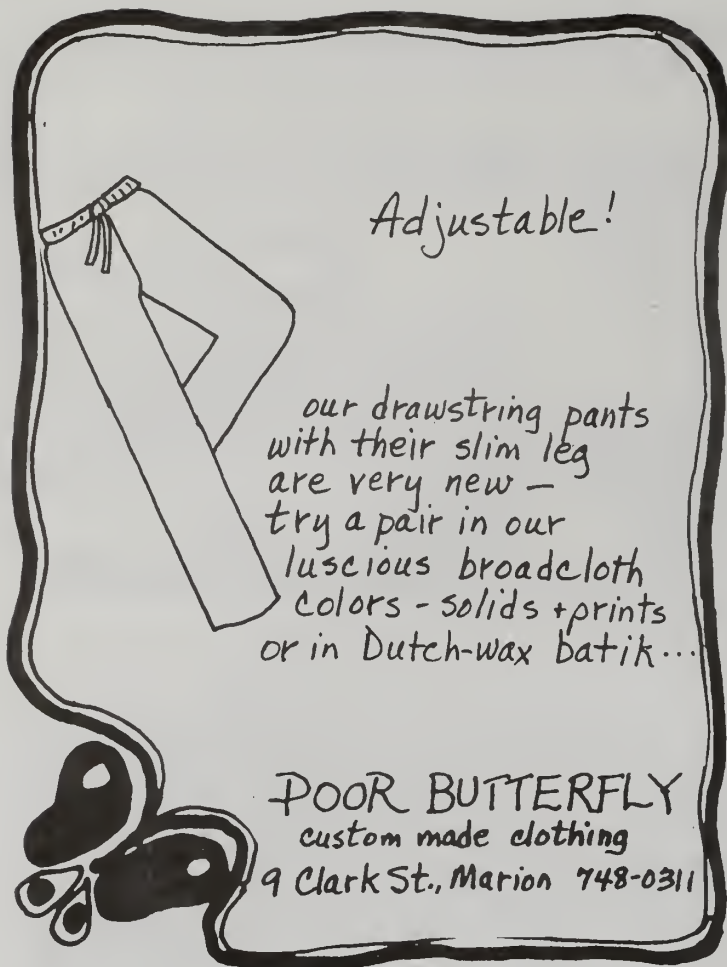 Adjustable!
our drawstring pants
with their slim leg
are very new —
try a pair in our
luscious broadcloth
colors - solids + prints
or in Dutch-wax batik...
POOR BUTTERFLY
custom made clothing
9 Clark St., Marion 748-0311